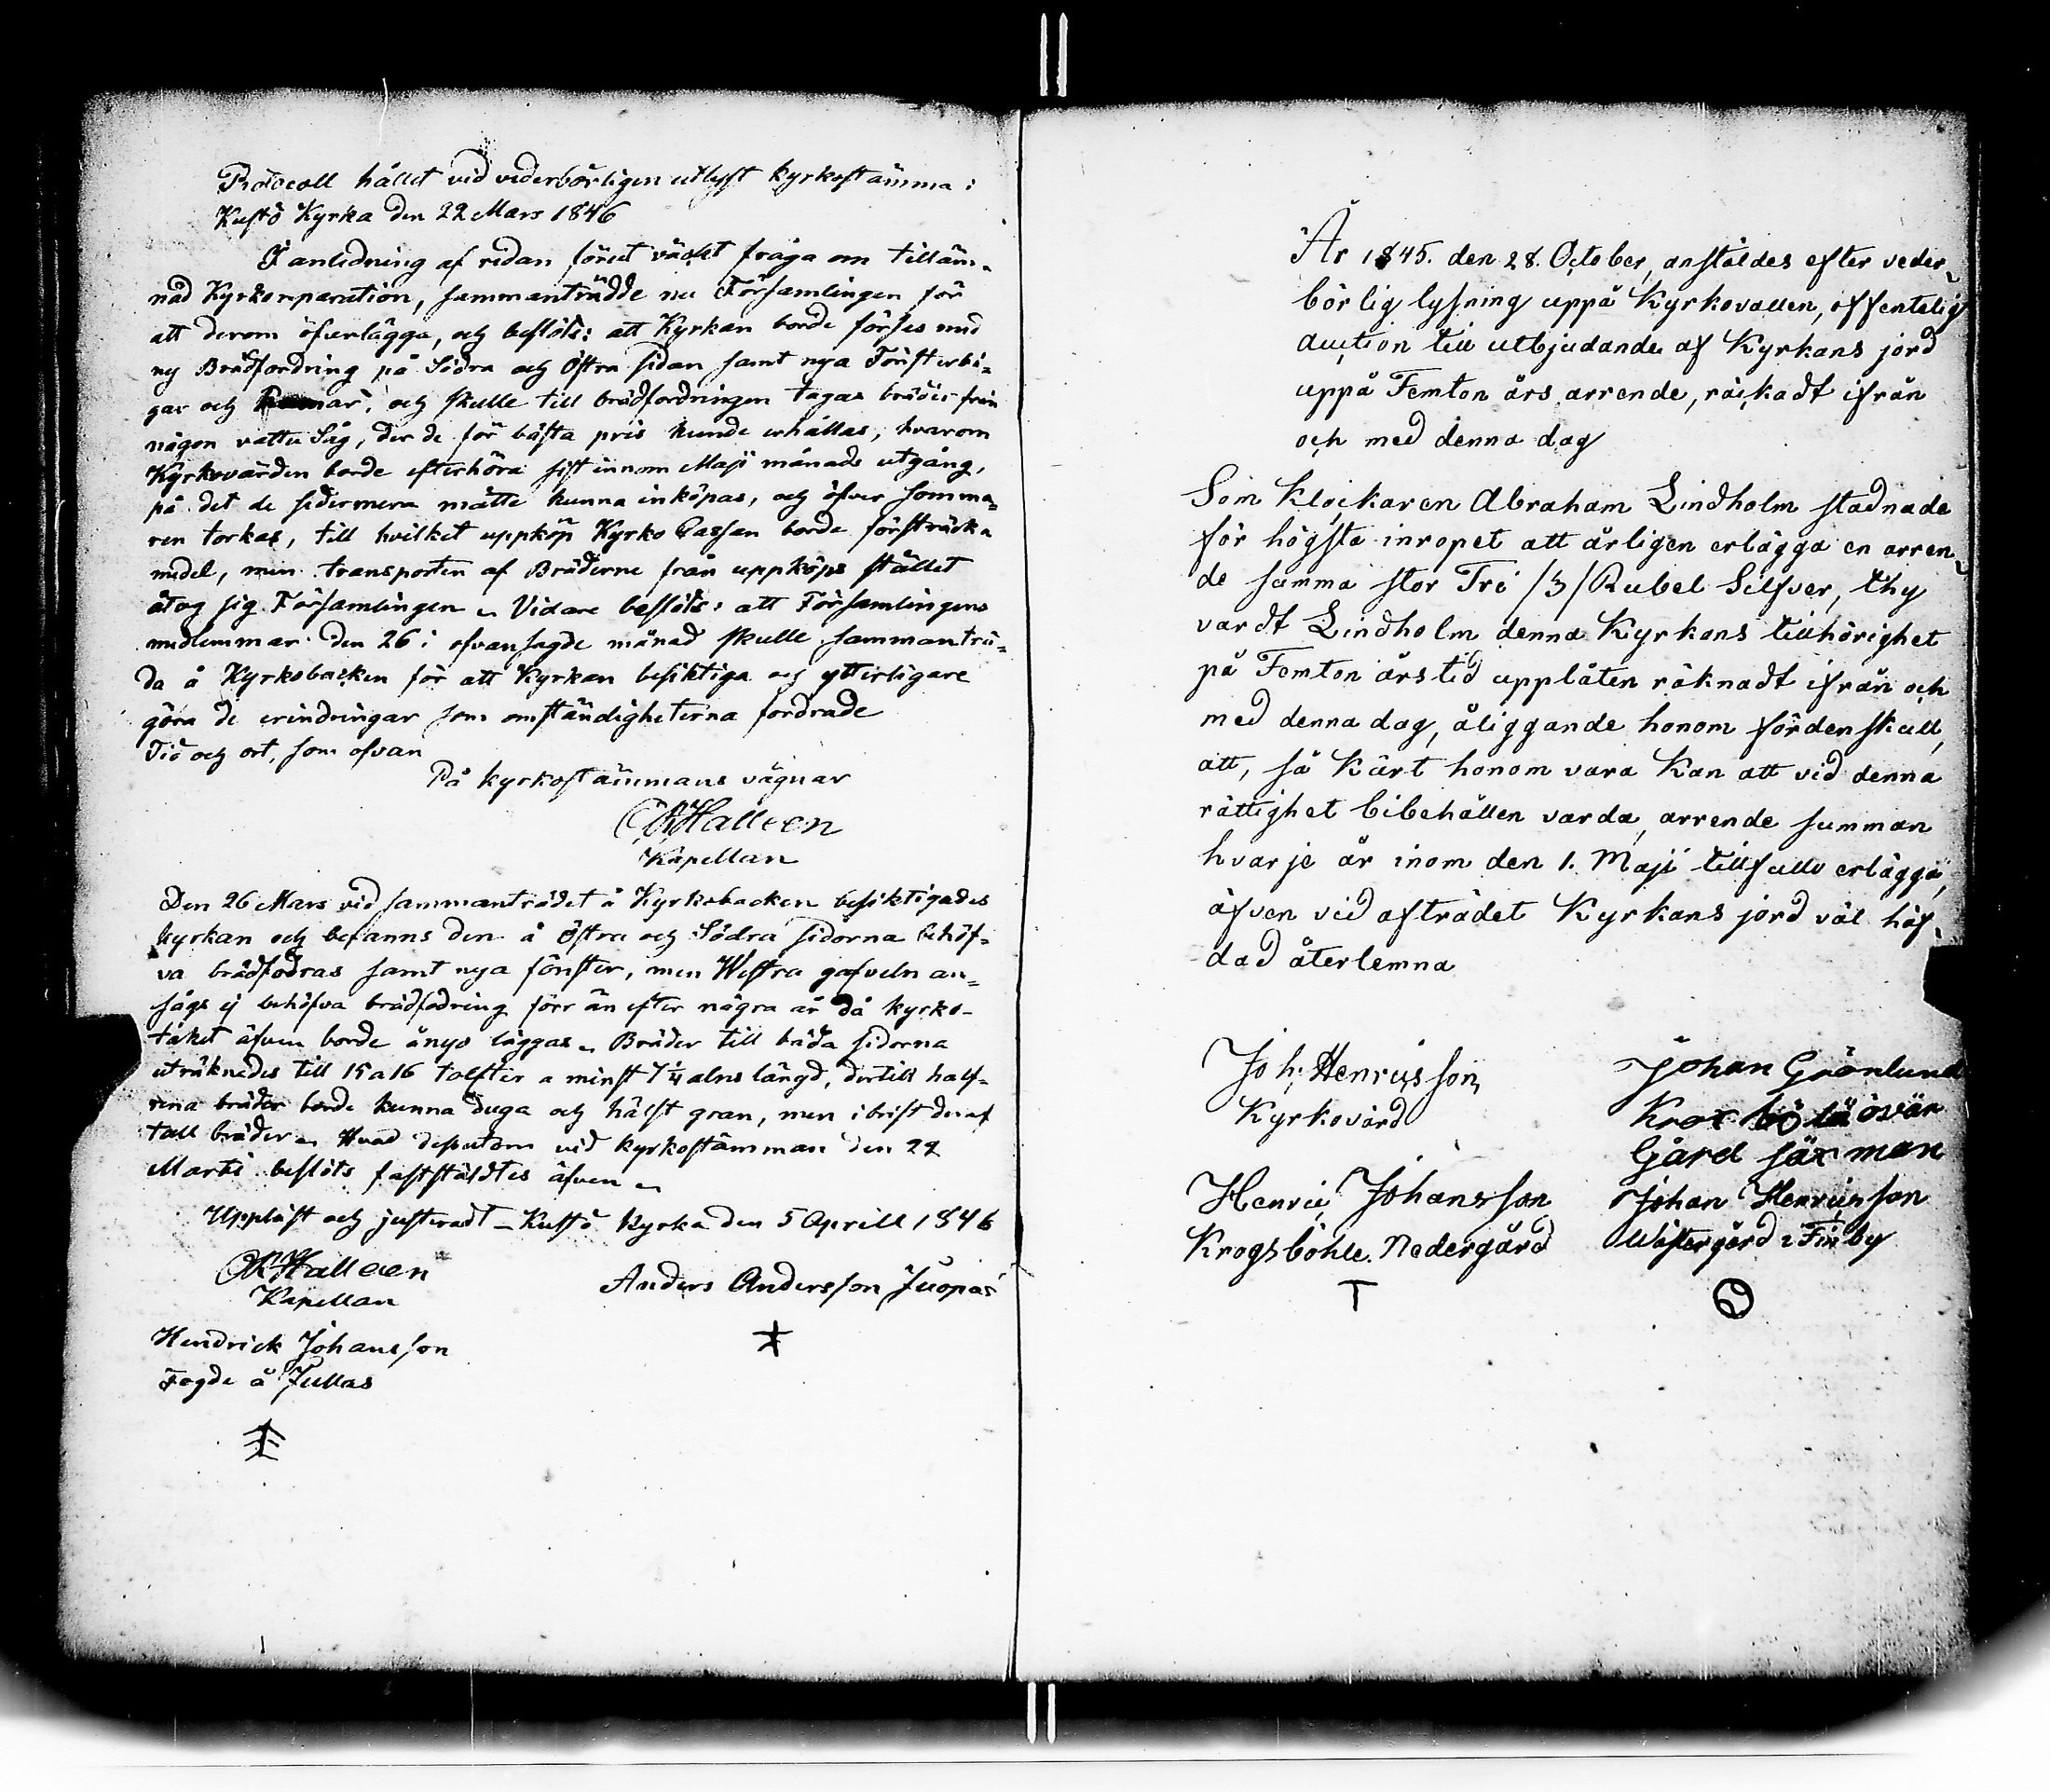 Protocoll hållet vid vederbörligen utlyst kyrkostämma i
Kustö Kyrka den 22 Mars 1846
I anledning af redan förut väckt fråga om tilläm-
nad Kyrkoreparation, sammanträdde nu Församlingen för
att derom öfverlägga, och beslöts: att Kyrkan borde förses med
ny Brädfordring på Södra och Östra sidan samt nya Fönsterbå-
gar och Ramar, och skulle till brädfordringen tagas bräder från
någon vattu Såg, der de för bästa pris kunde erhållas, hvarom
Kyrkovärden borde efterhöra sist innom Maji månads utgång,
på det de sedermera måtte kunna inköpas, och öfver somma-
ren torkas, till hvilket uppköp Kyrko Cassan borde försträcka
medel, men transporten af Bräderne från uppköps stället
åtog sig Församlingen. Vidare beslöts: att Församlingens
medlemmar den 26 i ofvansagde månad skulle sammanträ-
da å Kyrkobacken för att Kyrkan besiktiga och ytterligare
göra de erindringar som omständigheterna fordrade
Tid och ort, som ofvan
På kyrkostämmans vägnar
Halleen
Kapellan
Den 26 Mars vid sammanträdet å Kyrkobacken besiktigades
kyrkan och befanns den å Östra och Södra sidorna behöf-
va brädfodras samt nya fönster, men Westra gafveln an-
sågs ej behöfva brädfodring förr än efter några år då kyrko-
taket äfven borde ånyo läggas. Bräder till båda sidorna
uträknades till 15 a 16 tolfter a minst 7 1/4 alns längd, dertill half-
rena bräder borde kunna duga och hälst gran, men i brist deraf
tall bräder. Hvad dessutom vid kyrkostämman den 22
Marti beslöts fastställdtes äfven.
Uppläst och justeradt - Kustö Kyrka den 5 Aprill 1846
Halleen
Kapellan
Anders Andersson Juopas
Hendrick Johansson
Fogde å Jullas
År 1845. den 28. October, anstäldes efter veder-
börlig lysning uppå Kyrkovallen, offentelig
auction till utbjudande af Kyrkans jord
uppå Femton års arrende, räckadt ifrån
och med denna dag
Som Klockaren Abraham Lindholm stadnade
för högsta inropet att årligen erlägga en arren-
de summa stor Tre /3/ Rubel Silfver, thy
vardt Lindholm denna Kyrkans tillhörighet
på Femton års tid upplåten räknadt ifrån och
med denna dag, åliggande honom fördenskull,
att, så kärt honom vara kan att vid denna
rättighet bibehållen varda, arrende summan
hvarje år inom den 1. Maji tillfullo erlägga,
äfven vid afträdet Kyrkans jord väl häf-
dad återlemna
Joh. Henricsson,
Kyrkovärd
Johan Grönlund
Krox böle övär
Gård säxman
Henric Johansson
Krogsböhle Nedergård
Johan Henricsson
Wästergård i Finby